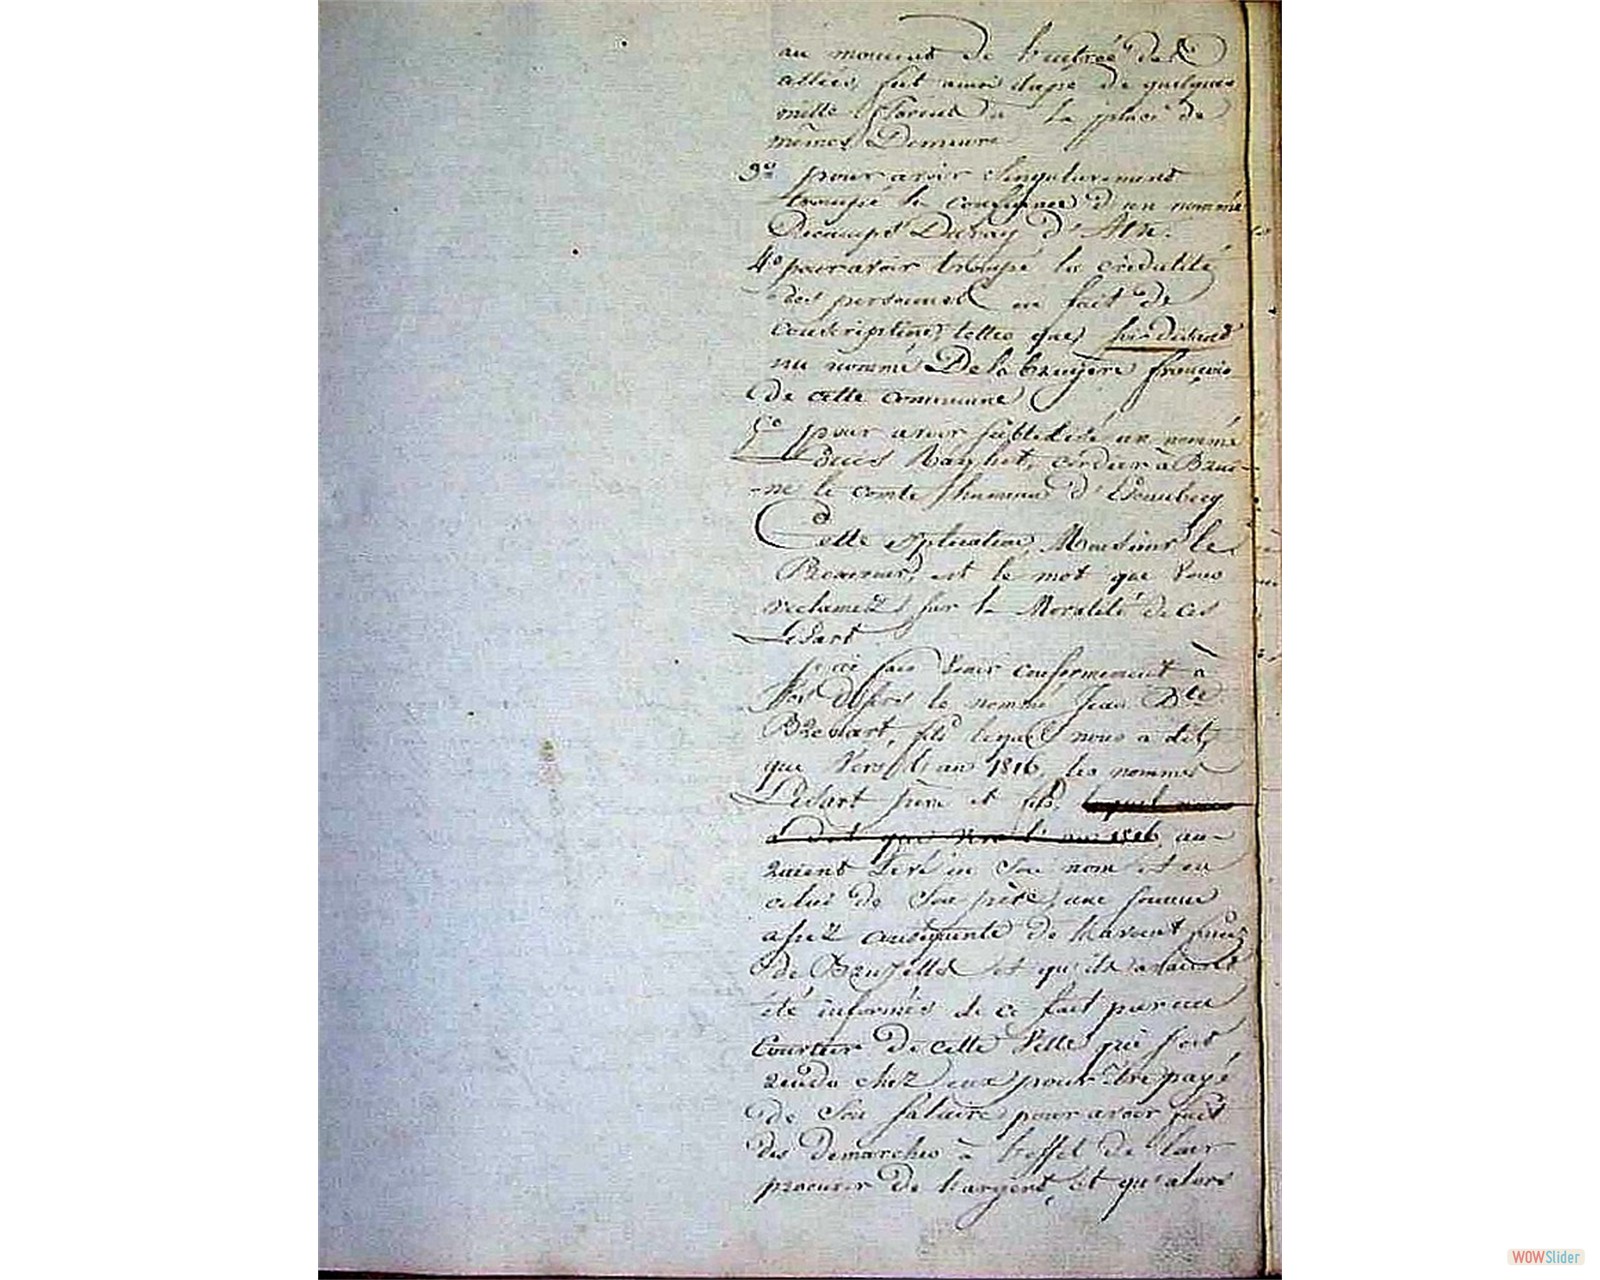 au moment de l'entrée des
alliés, fut ainsi dupé de quelques
mille florins à la place de
mêmes Demeure
3º pour avoir Singulierement
trompé la confiance d'un nommé
Decamps Duray d'Ath.
4º pour avoir trompé la crédulité
des personnes en fait de
conscription, telles que, soi disant
un nommé Delabruyere françois
de cette commune
5º pour avoir un nommé
Louis cordier à Brai-
-ne le comte d'Ecaubecq
Cette Monsieur le
Procureur, est le mot que Vous
reclamez sur la Moralité de ces
Ledart
j'ai fais Venir conformement à
Vos désirs le nommé Jean Bte
Brouart, fils lequel nous a dit,
que Vers l'an 1816, les nommés
Ledart père et fils, lequel nous
a dit que Vers l'an 1816, au-
raient tiré en Son nom et en
celui de Son père, une somme
assez conséquente de
de Bruxelles et qu'ils avaient
été informés de ce fait par un
Courtier de cette Ville qui s'est
rendu chez eux pour être payé
de Son Salaire pour avoir fait
des demarches à l'effet de leur
procurer de l'argent, et qu'alors
WOWSlider